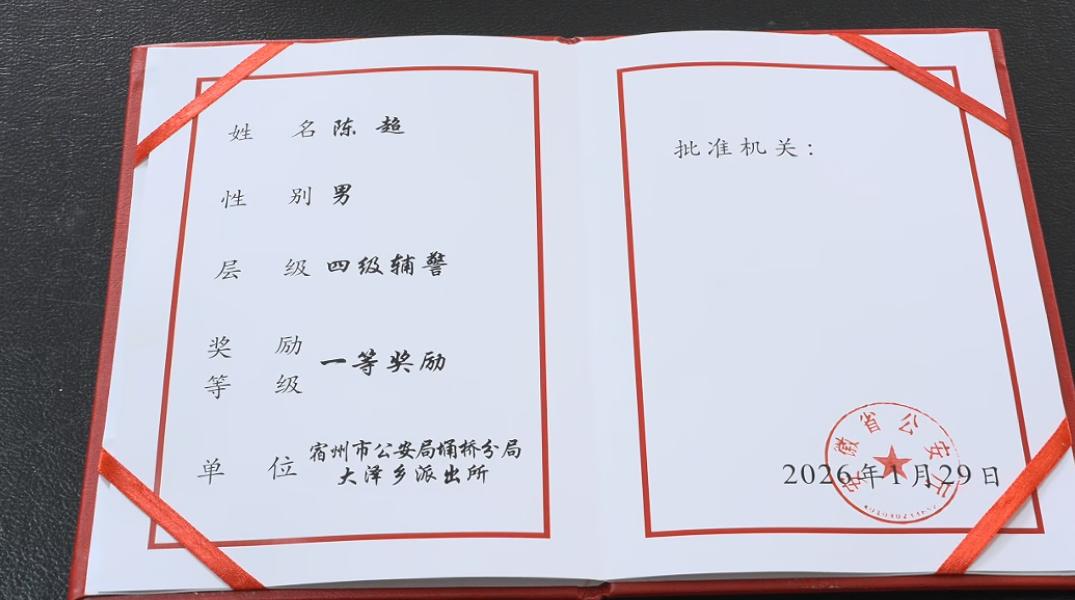 姓名 陈超
性别 男
层级 四级辅警
奖励等级 一等奖励
单位 宿州市公安局埇桥分局
大泽乡派出所
批准机关：
安徽省公安厅
2026年1月29日